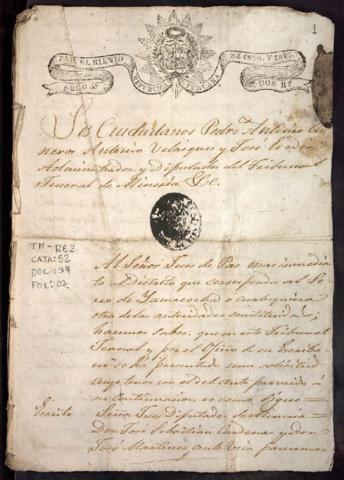 1
PAR EL BIENIO
REPUBLICA PERUANA
DOS Rs
Los Ciudadanos Pedro Antonio
Antonio Velasquez y José
Administrador y Diputados del Tribunal
General de Mineria &c.
TM-RE2
CAJA: 52
DOC: 34
FOL: 07
Al Señor Juez de Paz mas inmedia
to al distrito que corresponda al
de Yamacocha o cualquiera
otra de las autoridades constituidas;
hacemos saber: que en este Tribunal
General y por el Oficio de su Escriba
no se ha presentado una solicitud
cuyo tenor con el del Auto proveido á
su continuacion es como sigue =
Escrito
Señores Diputados
Don José Sebastian Cardenas y don
José Martinez ante Usia parecemos